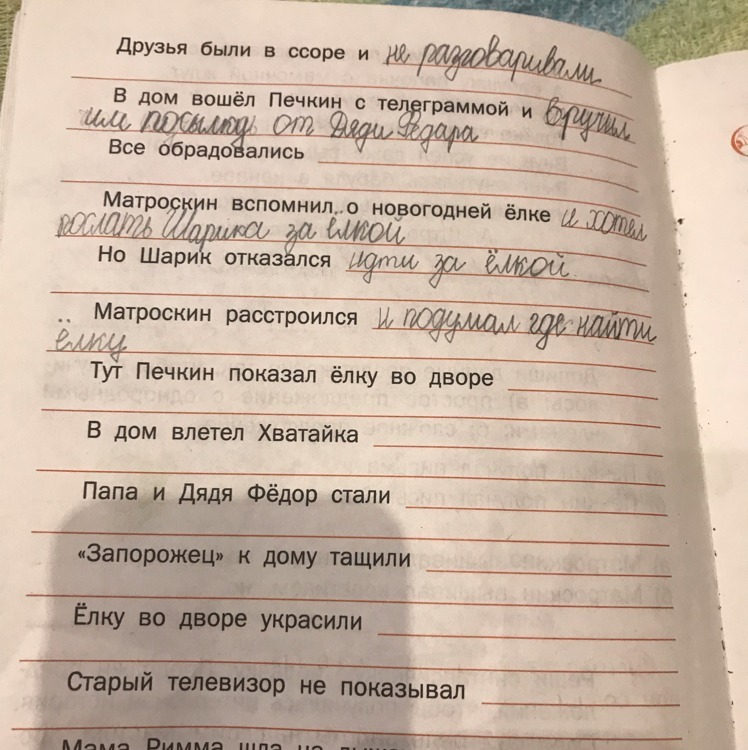 Друзья были в ссоре и не разговаривали
В дом вошёл Печкин с телеграммой и вручил
им посылку от Дяди Фёдара
Все обрадовались
Матроскин вспомнил о новогодней ёлке и хотел
послать Шарика за ёлкой
Но Шарик отказался идти за ёлкой.
Матроскин расстроился и подумал где найти
ёлку
Тут Печкин показал ёлку во дворе
В дом влетел Хватайка
Папа и Дядя Фёдор стали
«Запорожец» к дому тащили
Ёлку во дворе украсили
Старый телевизор не показывал
Мама Римма шла на